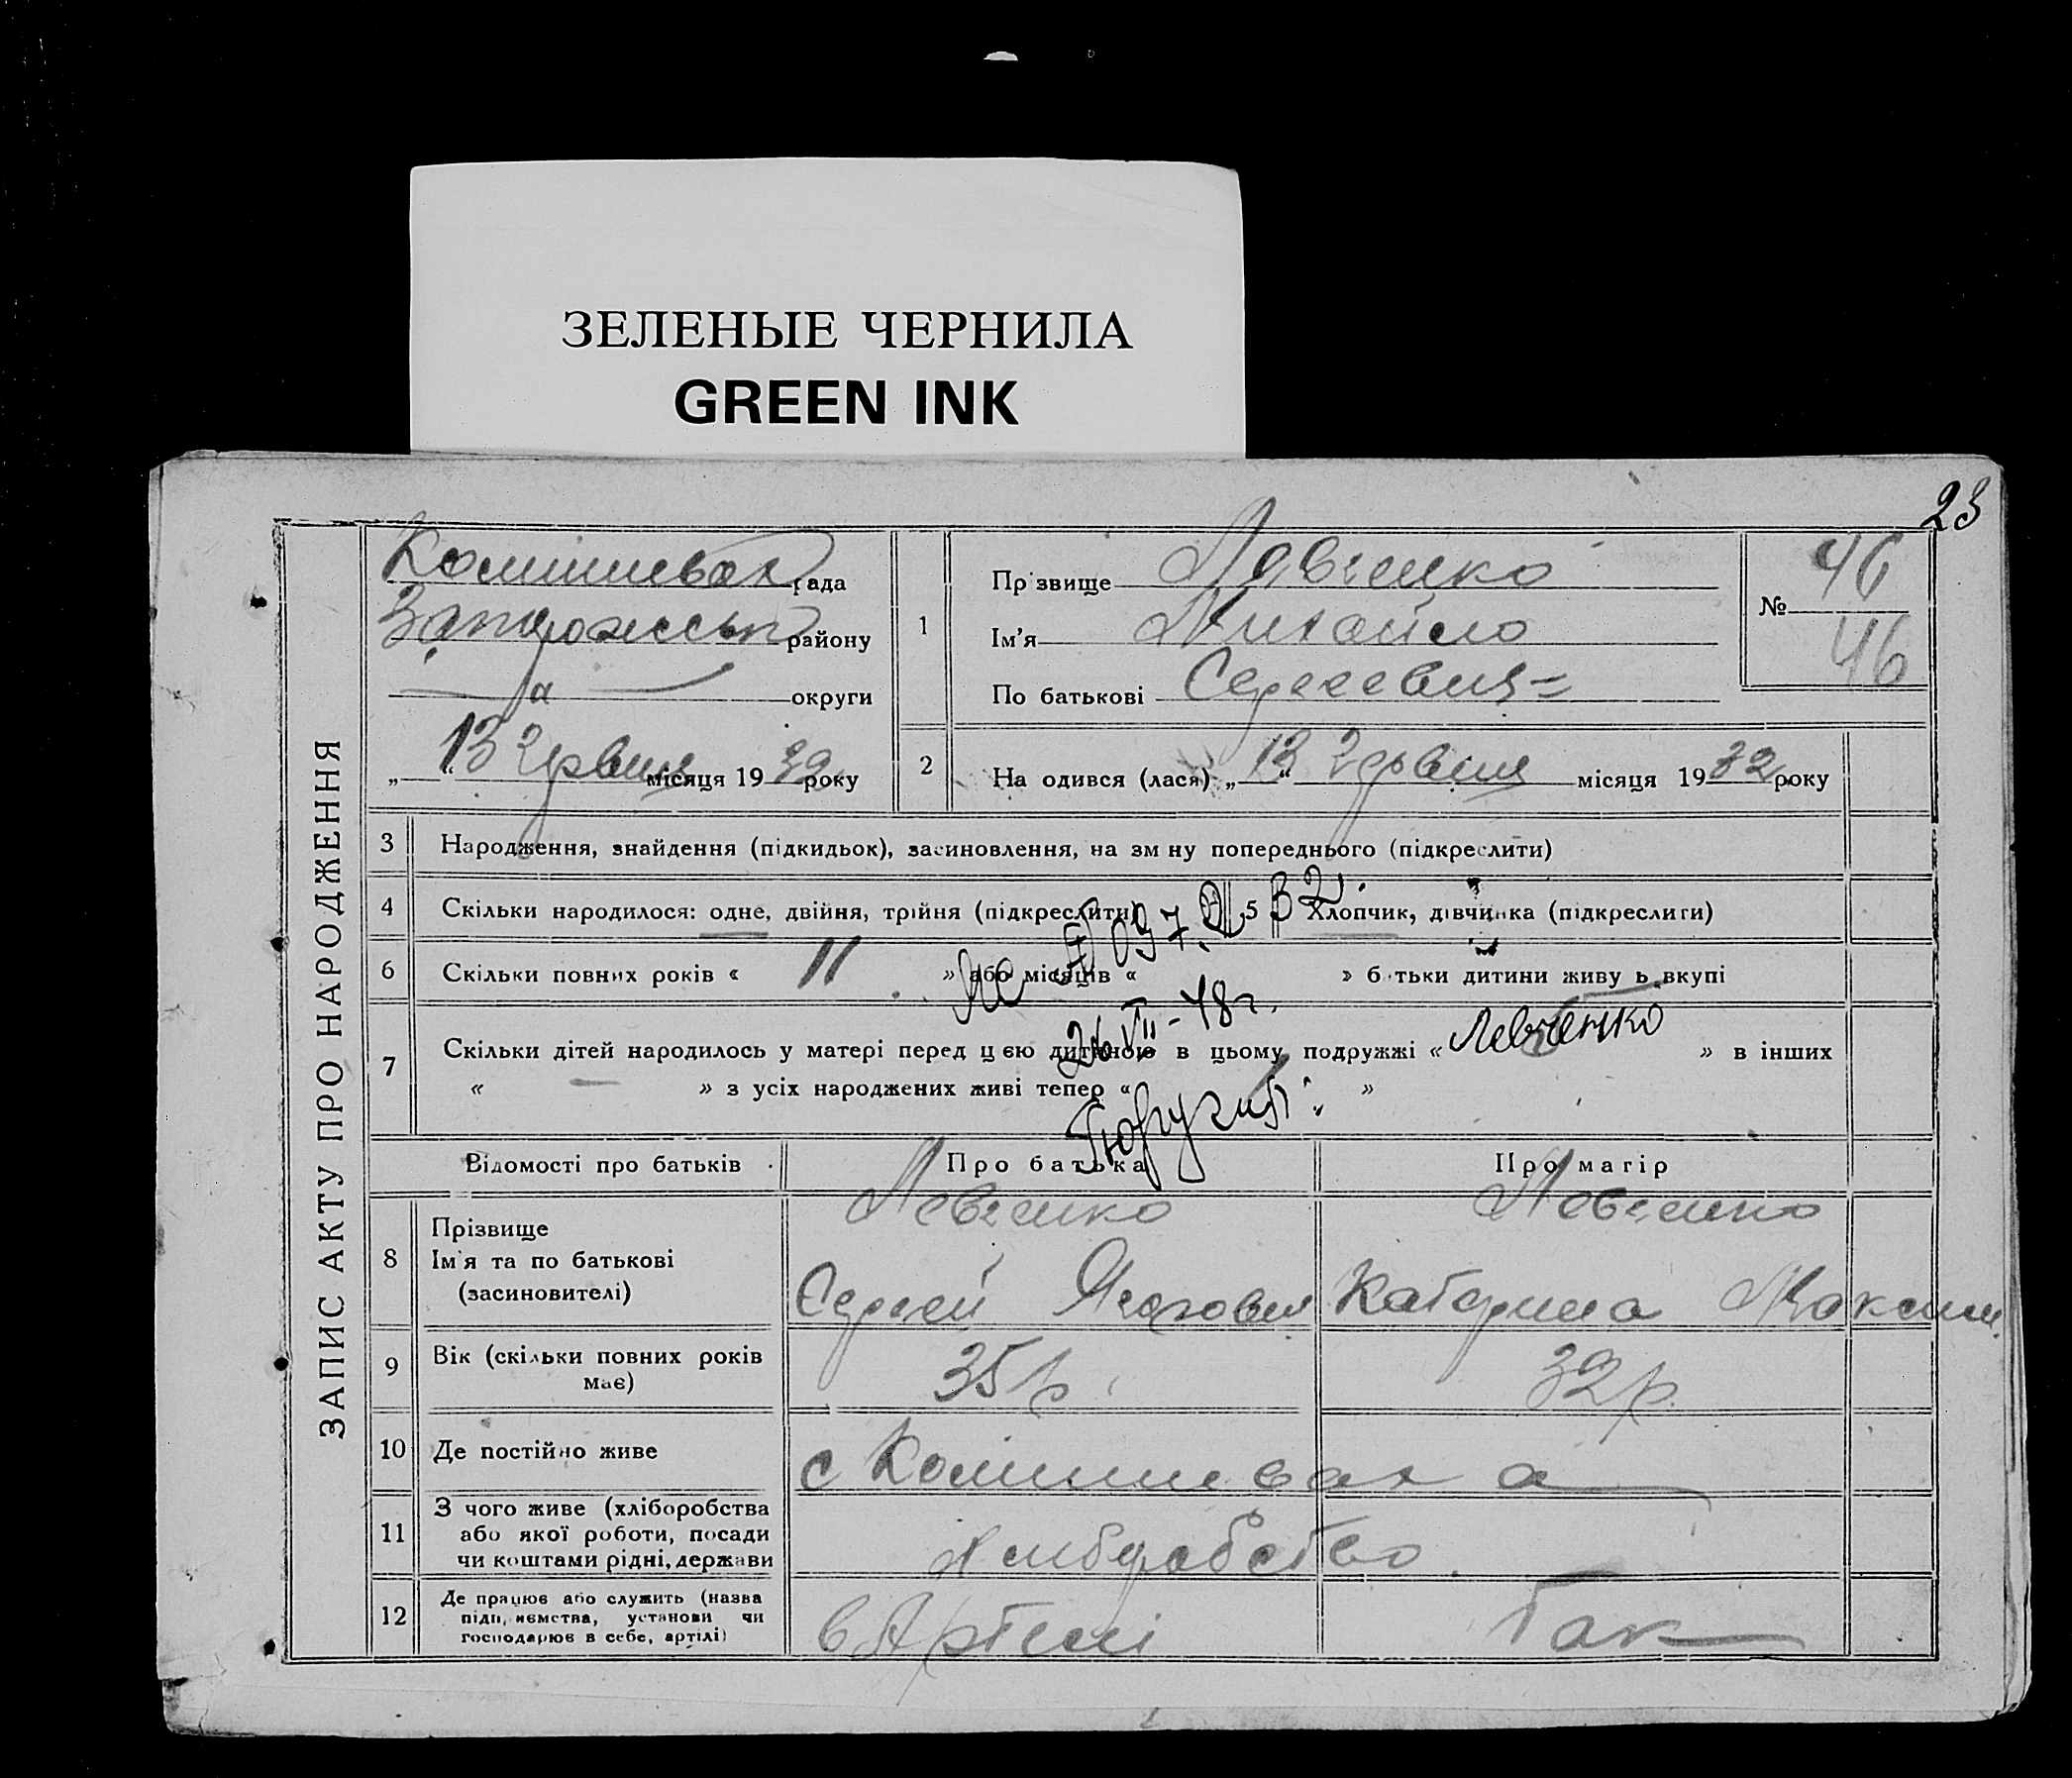 ЗЕЛЕНЫЕ ЧЕРНИЛА
GREEN INK
23
ЗАПИС АКТУ ПРО НАРОДЖЕННЯ
Комишевах рада
Запорожськ району
округи
„ 13 “ червня місяця 19 32 року
1
Прізвище Левченко
Ім’я Михайло
По батькові Сергеевич
№ 46
46
2 На одився (лася) „ 13 “ червня місяця 19 32 року
3 Народження, знайдення (підкидьок), засиновлення, на зм ну попереднього (підкреслити)
4 Скільки народилося: одне, двійня, трійня (підкреслити) 5 Хлопчик, дівчинка (підкреслити)
6 Скільки повних років « 11 » або місяців « » б тьки дитини живу ь вкупі
26 VII - 48 г.
7 Скільки дітей народилось у матері перед ц єю дитиною в цьому подружжі « » в інших
Левченко
« — » з усіх народжених живі тепер « »
Відомості про батьків Про батька Про матір
8 Прізвище Левченко Левченко
Ім’я та по батькові
(засиновителі) Сергей Катерина Максим.
9 Вік (скільки повних років має) 35 р. 32 р.
10 Де постійно живе с Комишеваха
11 З чого живе (хліборобства
або якої роботи, посади
чи коштами рідні, держави
Хлиборобство
12 Де працює або служить (назва
підп, иємства, установи чи
господарює в себе, артілі)
в Артелі Так